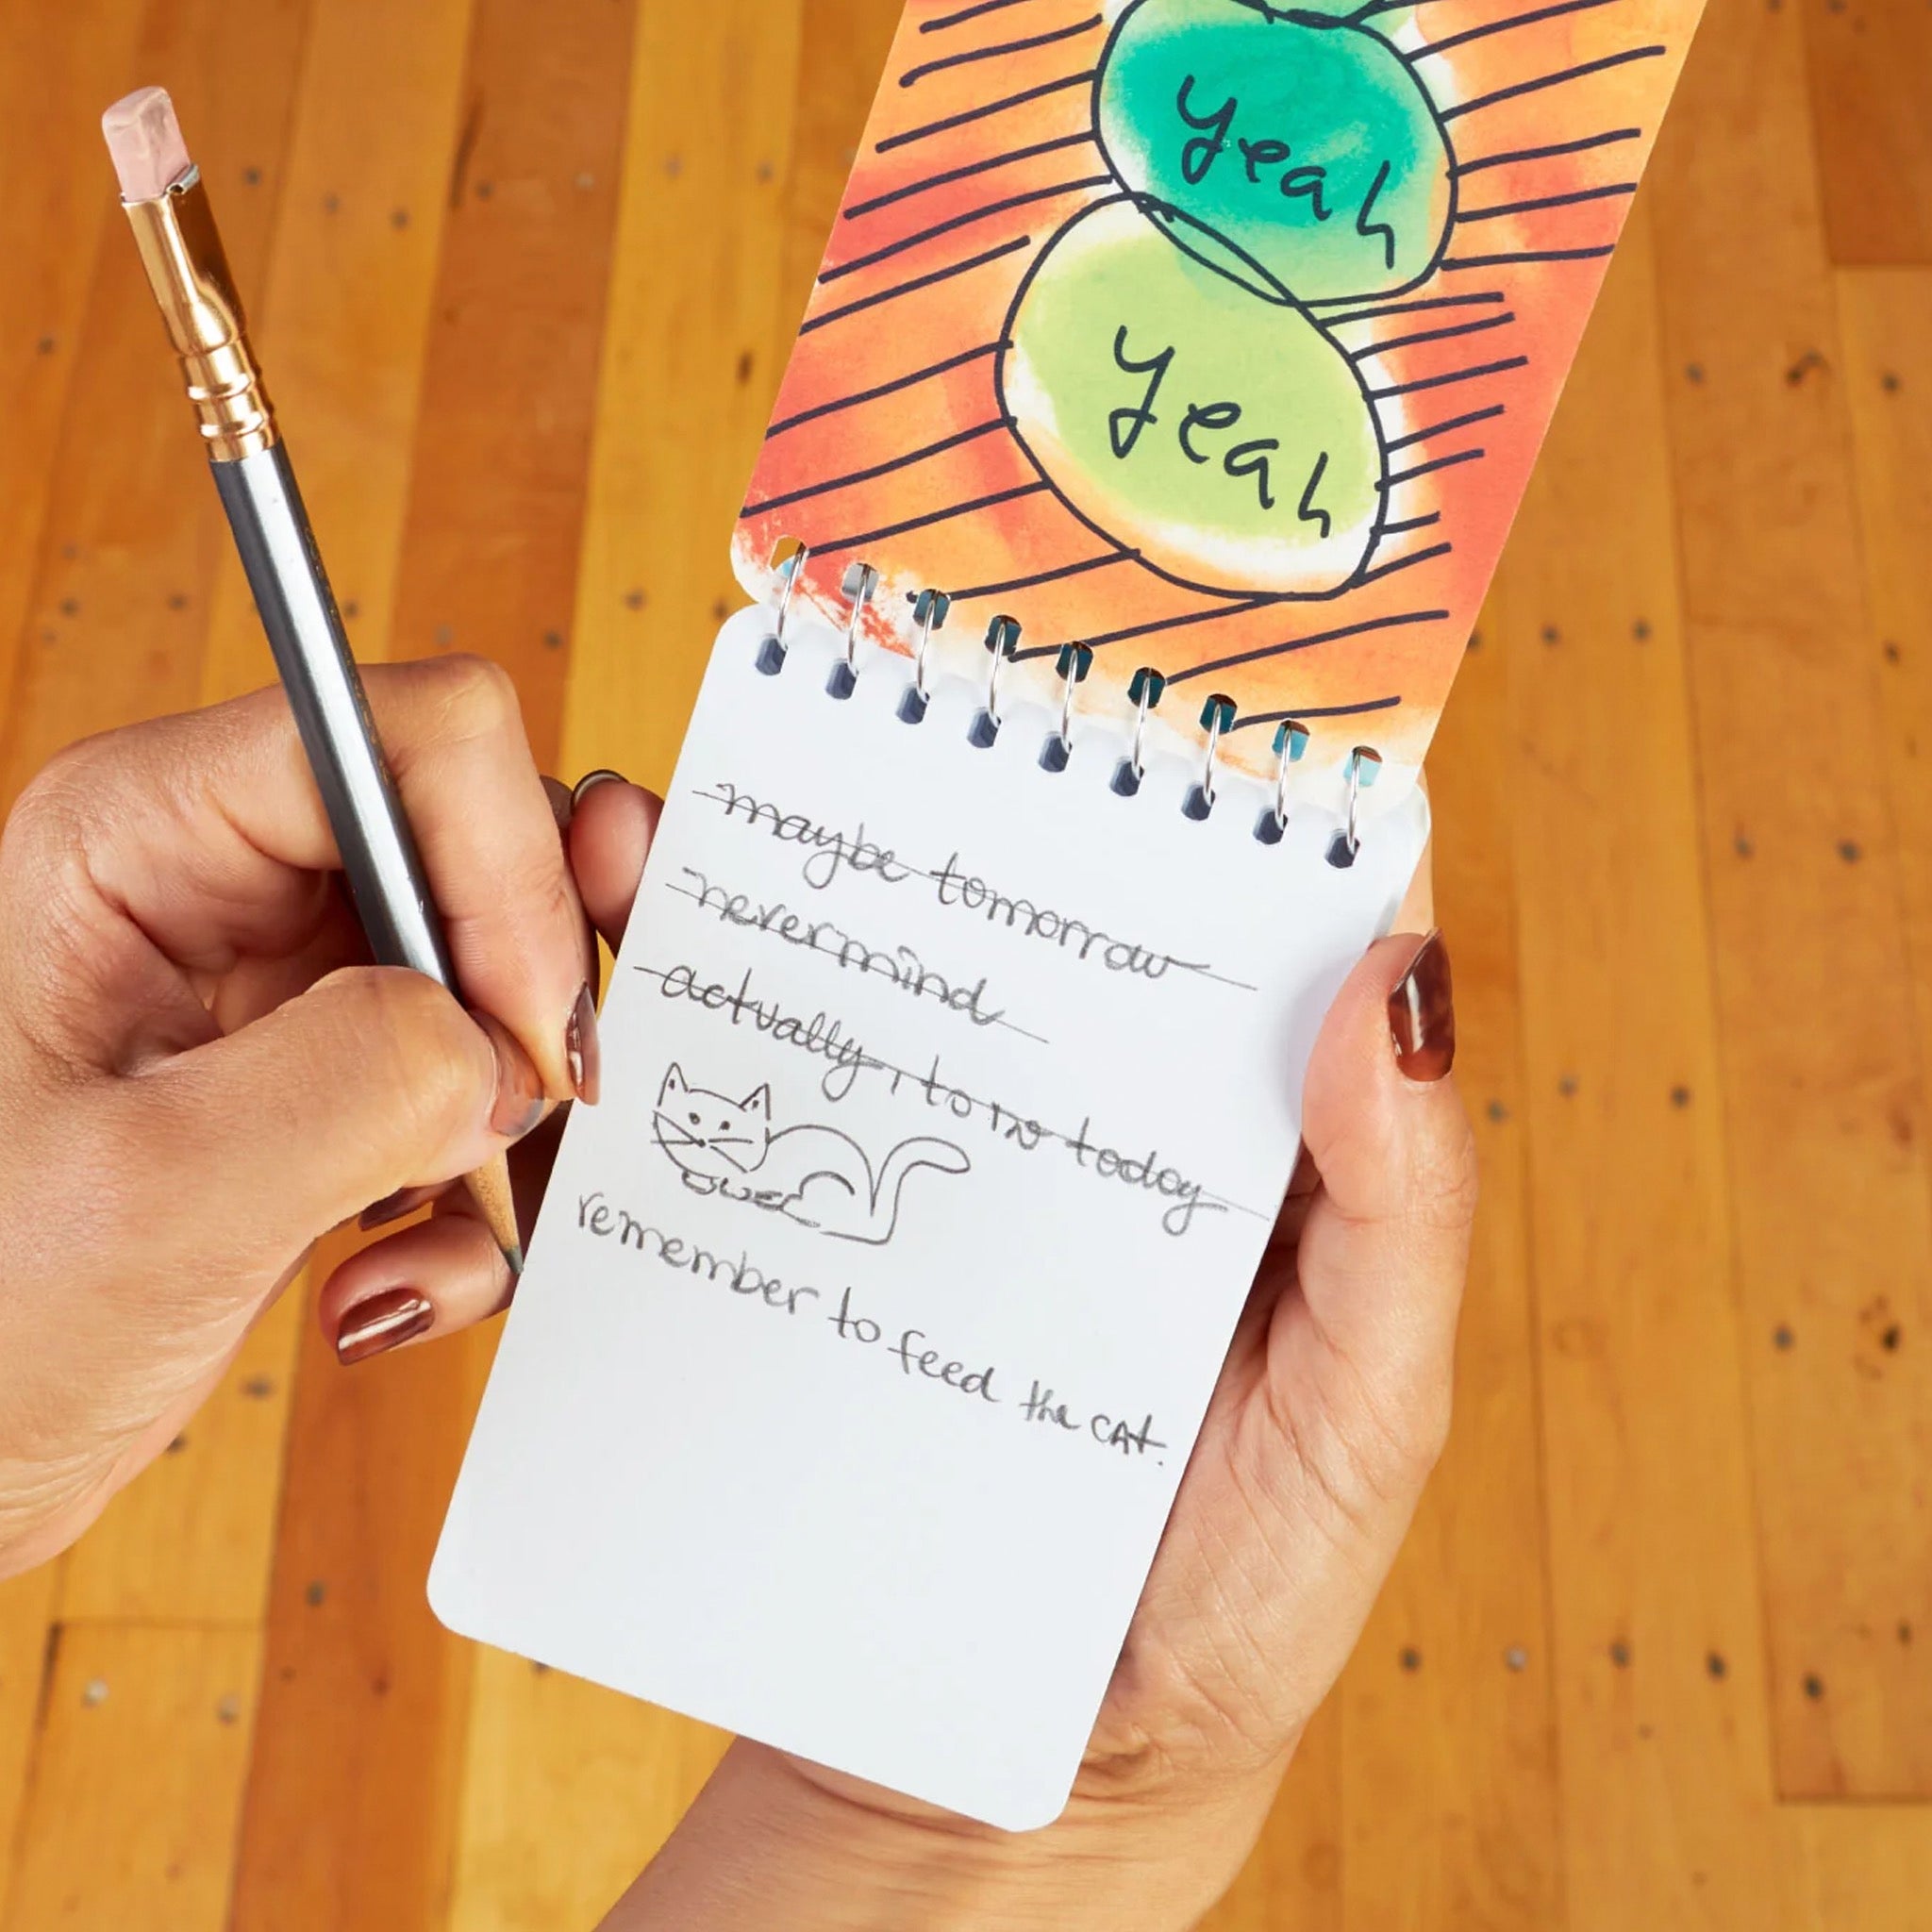 yeah
yeah
maybe tomorrow
nevermind
actually, to no today
remember to feed the cAt.